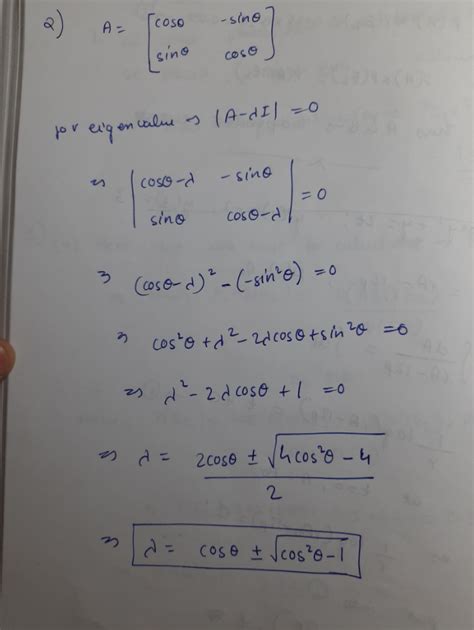 2) A = [cosθ -sinθ
sinθ cosθ]
for eigenvalue ⇒ |A-λI| = 0
⇒ |cosθ-λ -sinθ
sinθ cosθ-λ| = 0
⇒ (cosθ-λ)² - (-sin²θ) = 0
⇒ cos²θ + λ² - 2λcosθ + sin²θ = 0
⇒ λ² - 2λcosθ + 1 = 0
⇒ λ = 2cosθ ± √4cos²θ - 4
2
⇒ λ = cosθ ± √cos²θ-1